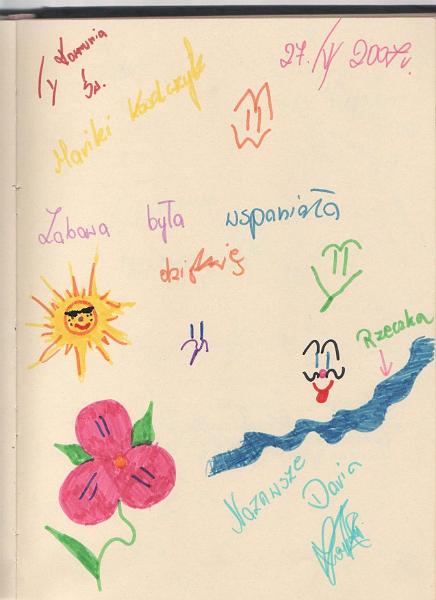 Komunia
Św.
27. IV 2007r.
Mariki
Zabawa była wspaniała
dziękuję
Rzeczka
Nazawsze
Daria